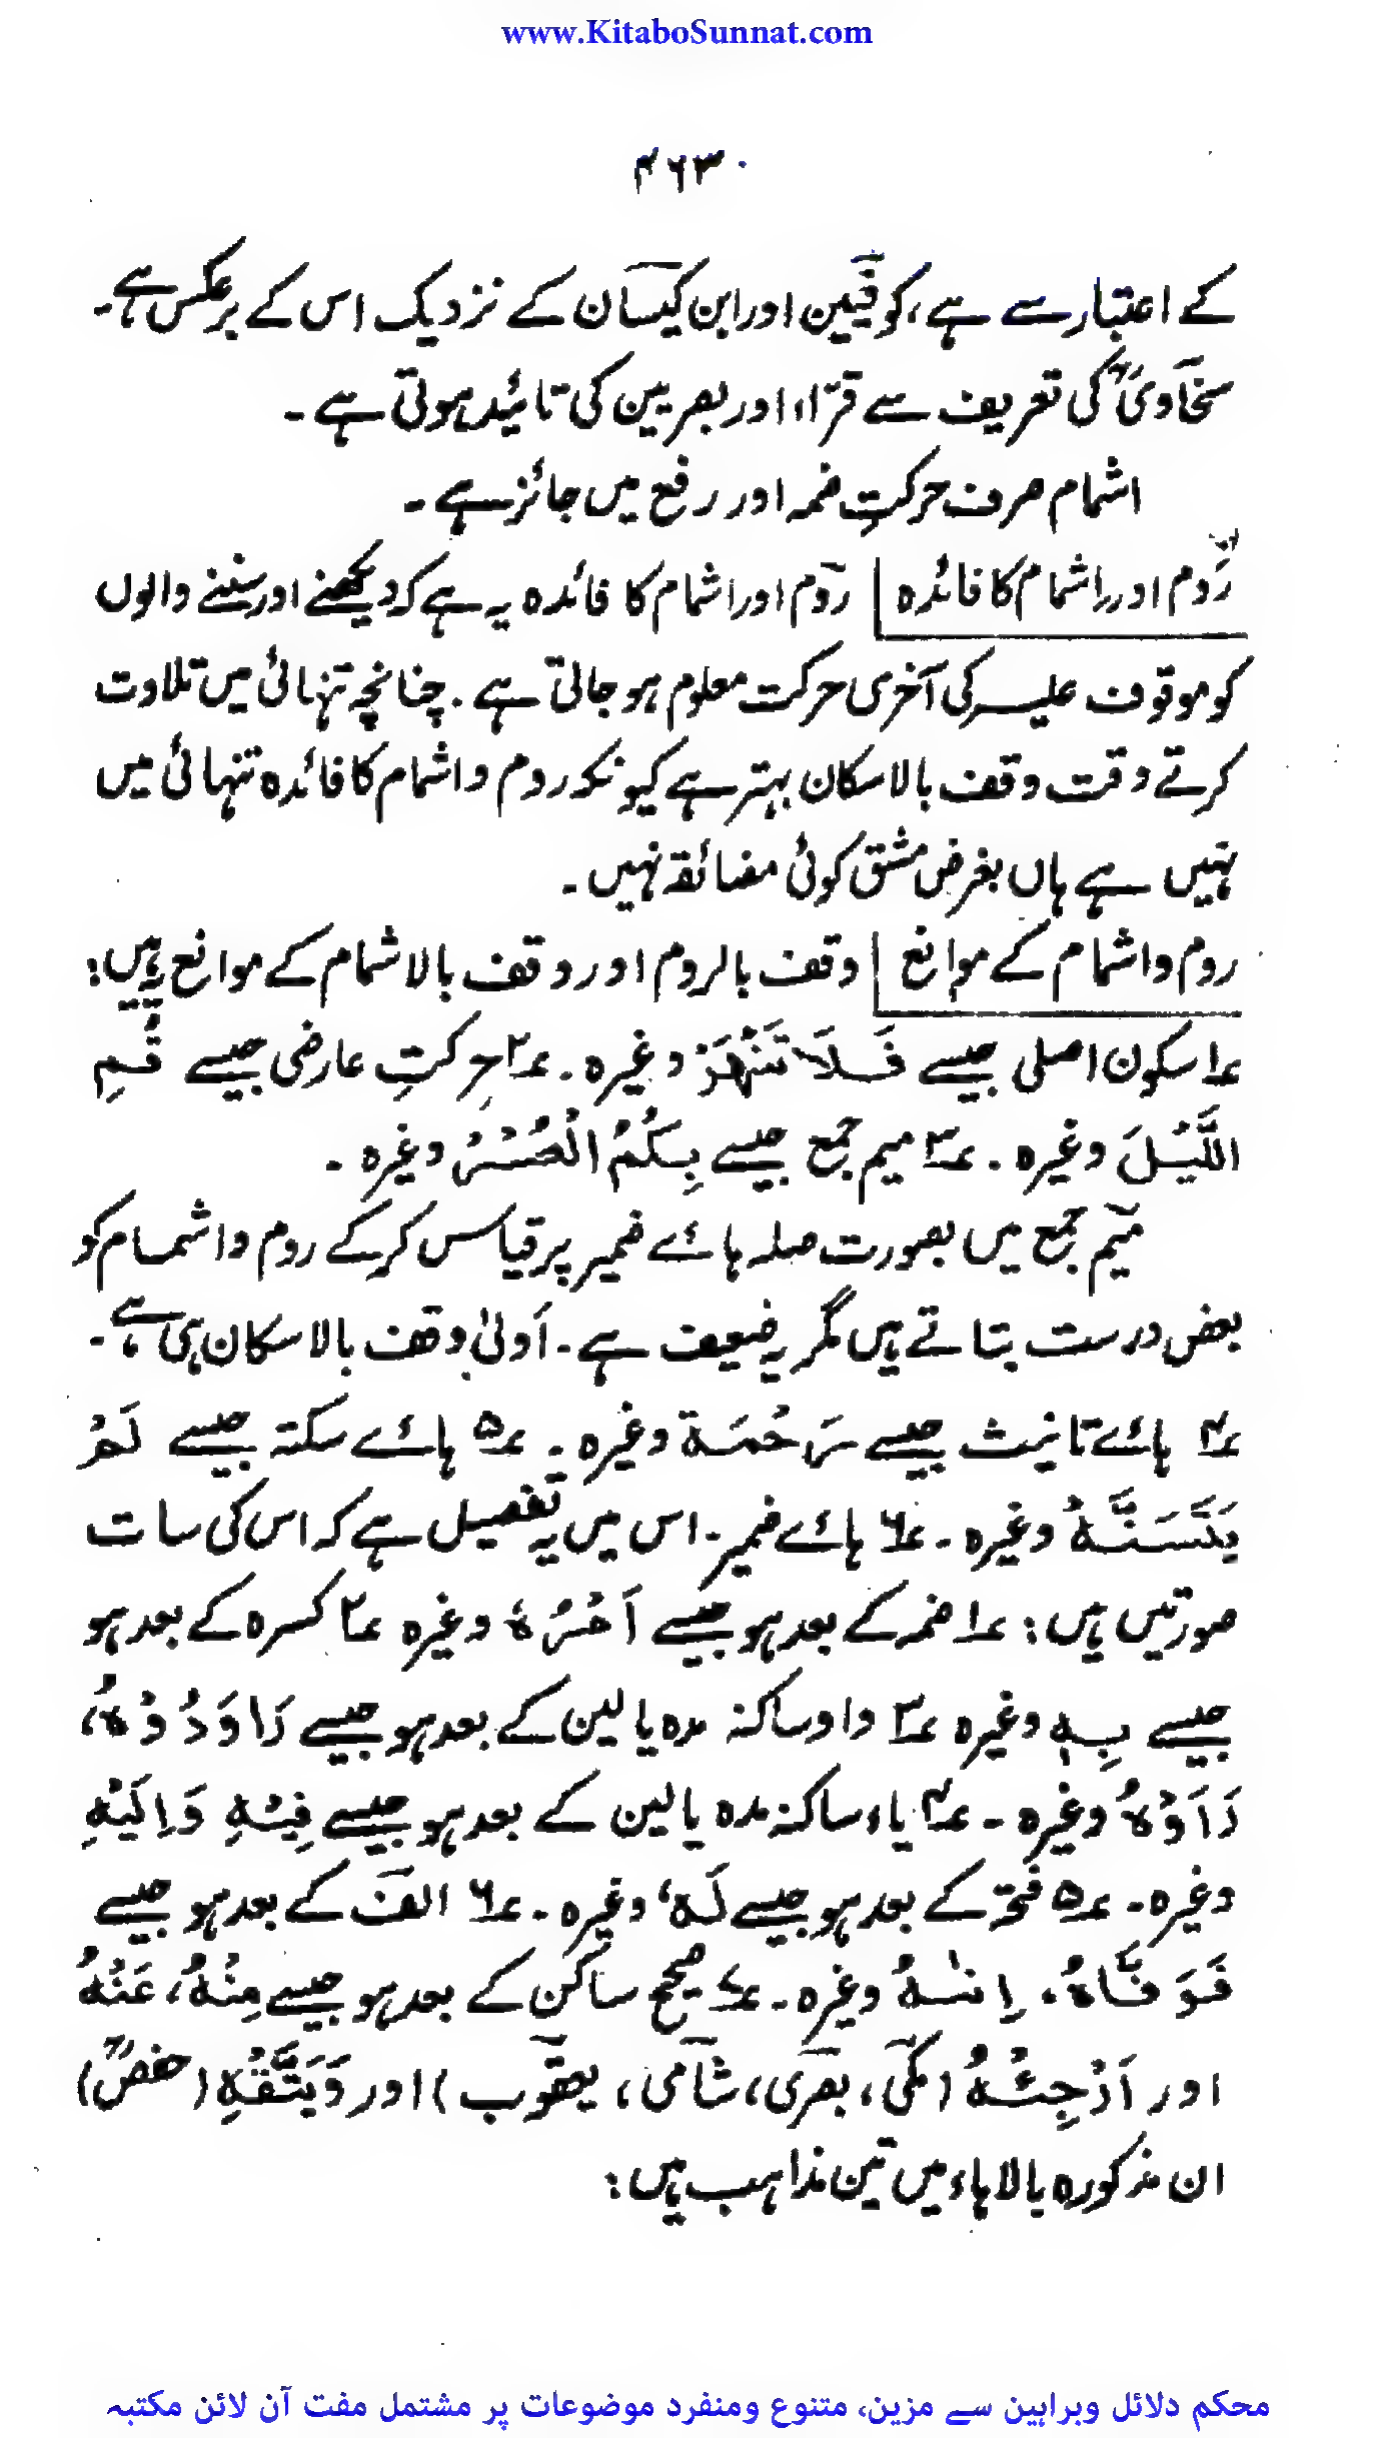 www.KitaboSunnat.com
۴۶۳۰
کے اعتبار سے ہے، کوفیین اور ابن کیسان کے نزدیک اس کے برعکس ہے۔
سخاویؒ کی تعریف سے قرّاء اور بصریین کی تائید ہوتی ہے ۔
اشمام صرف حرکتِ ضمہ اور رفع میں جائز ہے ۔
رَوم اور اشمام کا فائدہ روم اور اشمام کا فائدہ یہ ہے کہ دیکھنے اور سننے والوں
کو موقوف علیہ کی آخری حرکت معلوم ہو جاتی ہے ۔ چنانچہ تنہائی میں تلاوت
کرتے وقت وقف بالاسکان بہتر ہے کیونکہ روم و اشمام کا فائدہ تنہائی میں
نہیں ہے ہاں بغرض مشق کوئی مضائقہ نہیں ۔
روم و اشمام کے موانع وقف بالروم اور وقف بالاشمام کے موانع یہ ہیں:
؏۱ سکون اصلی جیسے فَلَا تَنْهَرْ وغیرہ ۔ ؏۲ حرکتِ عارضی جیسے قُمِ
اللَّيْلَ وغیرہ ۔ ؏۳ میم جمع جیسے بِكُمُ الْعُسْرَ وغیرہ ۔
میم جمع میں بصورت صلہ ہائے ضمیر پر قیاس کرکے روم و اشمام کو
بعض درست بتاتے ہیں مگر یہ ضعیف ہے ۔ اَولیٰ وقف بالاسکان ہی ہے ۔
؏۴ ہائے تانیث جیسے رَحْمَة وغیرہ ۔ ؏۵ ہائے سکتہ جیسے لَمْ
يَتَسَنَّهْ وغیرہ ۔ ؏۶ ہائے ضمیر ۔ اس میں یہ تفصیل ہے کہ اس کی سات
صورتیں ہیں : ؏۱ ضمہ کے بعد ہو جیسے اَمْرُهٗ وغیرہ ؏۲ کسرہ کے بعد ہو
جیسے بِهٖ وغیرہ ؏۳ واو ساکنہ مدہ یا لین کے بعد ہو جیسے رَاوَدُوْهُ،
رَاَوْهُ وغیرہ ۔ ؏۴ یاء ساکنہ مدہ یا لین کے بعد ہو جیسے فِيْهِ وَاِلَيْهِ
وغیرہ ۔ ؏۵ فتحہ کے بعد ہو جیسے لَهٗ وغیرہ ۔ ؏۶ الف کے بعد ہو جیسے
فَوَفّٰاهُ، اِنٰهُ وغیرہ ۔ ؏۷ صحیح ساکن کے بعد ہو جیسے مِنْهُ، عَنْهُ
اور اَرْجِئْهُ (مکی، بصری، شامی، یعقوب) اور وَيَتَّقْهِ (حفصؒ)
ان مذکورہ بالا ہاء میں تین مذاہب ہیں :
محکم دلائل وبراہین سے مزین، متنوع ومنفرد موضوعات پر مشتمل مفت آن لائن مکتبہ